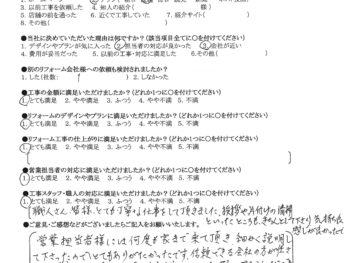 3. 以前工事を依頼した 4. 知人の紹介( 様)
5. 店舗の前を通った 6. 近くで工事していた 7. 紹介サイト( )
8. その他( )
●当社に決めていただいた理由は何ですか?(該当項目全てに〇を付けてください)
1. デザインやプランが気に入った 2. 担当者の対応が良かった 3. 会社が近い
4. 費用が妥当だった 5. 以前の工事・対応に満足した 6. その他( )
●別のリフォーム会社様への依頼も検討されましたか?
1. した(社数: ) 2. しなかった
●工事の金額に満足いただけましたか?(どれか1つに〇を付けてください)
1. とても満足 2. やや満足 3. ふつう 4. やや不満 5. 不満
●リフォームのデザインやプランに満足いただけましたか?(どれか1つに〇を付けてください)
1. とても満足 2. やや満足 3. ふつう 4. やや不満 5. 不満
●リフォーム工事の仕上がりに満足いただけましたか?(どれか1つに〇を付けてください)
1. とても満足 2. やや満足 3. ふつう 4. やや不満 5. 不満
●営業担当者の対応に満足いただけましたか?(どれか1つに〇を付けてください)
1. とても満足 2. やや満足 3. ふつう 4. やや不満 5. 不満
●工事スタッフ・職人の対応に満足いただけましたか?(どれか1つに〇を付けてください)
1. とても満足 2. やや満足 3. ふつう 4. やや不満 5. 不満
職人さん皆様、とても丁寧な仕事をして頂きました。挨拶や片付けの清掃
といったところも、きちんとして下さり、気持ち良く
感じが良かったで
●ご意見・ご感想などがございましたらご記入をお願いいたします。
営業担当者様には何度も来て頂き、細かく説明し
て下さったのでとてもありがたかったです。信頼できる会社の方が